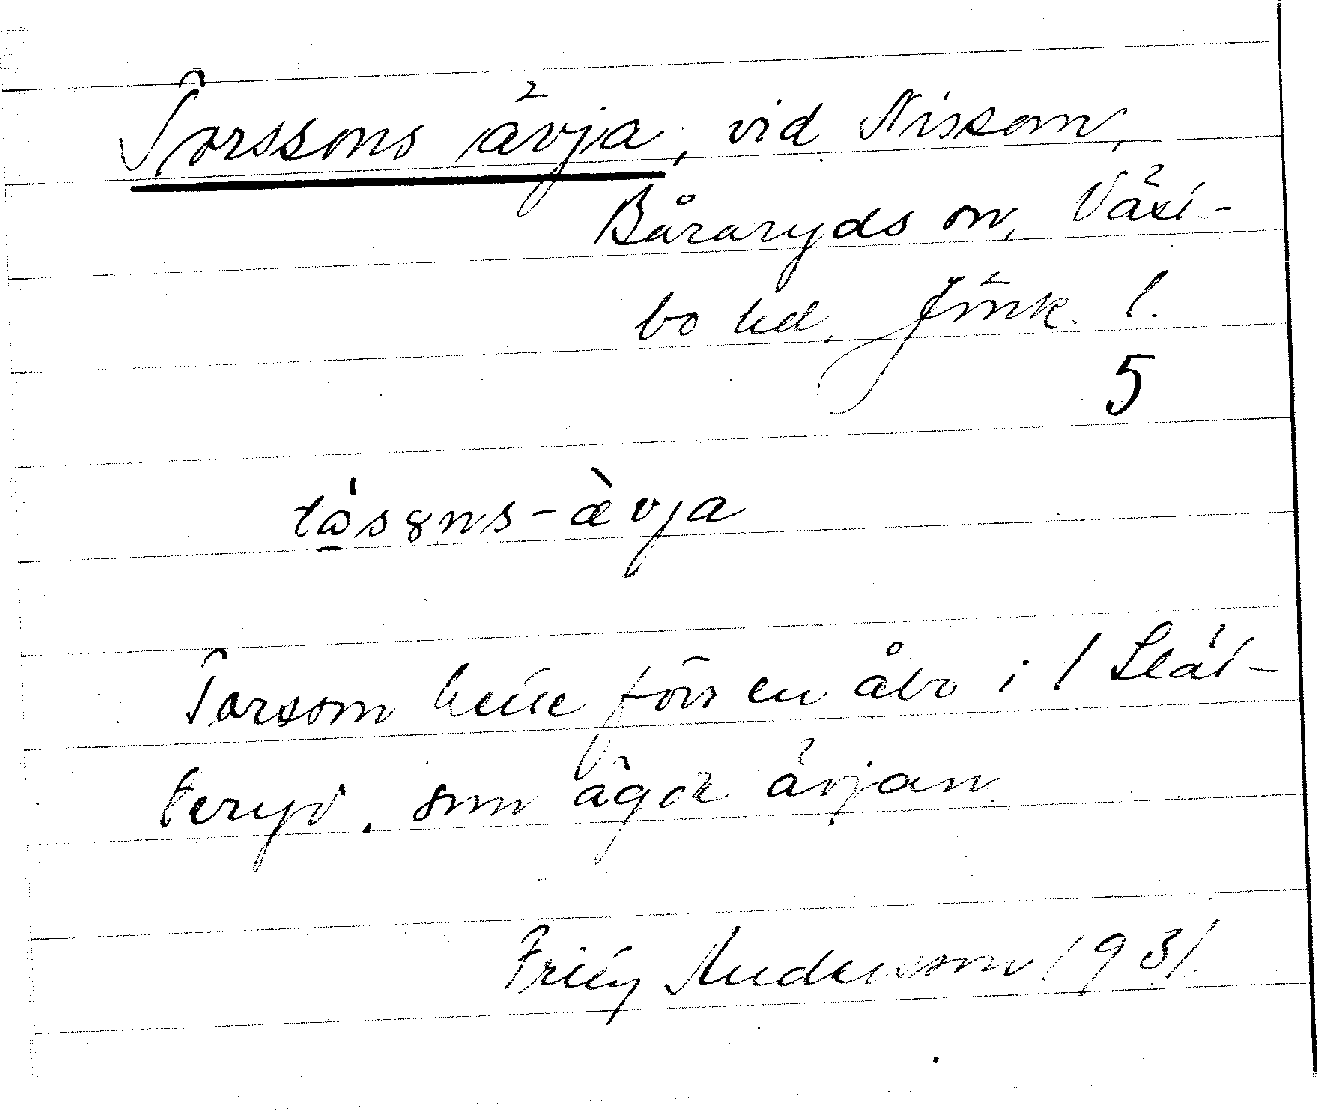 Torssons ävja, vid Nissan,
Båraryds sn, Väst-
bo hd. Jönk. l.
5
tå̲sȣns-ævja
Torsson hette förr en åbo i l Slät-
teryd. som ägde ävjan
Fritz Andersson 1931.